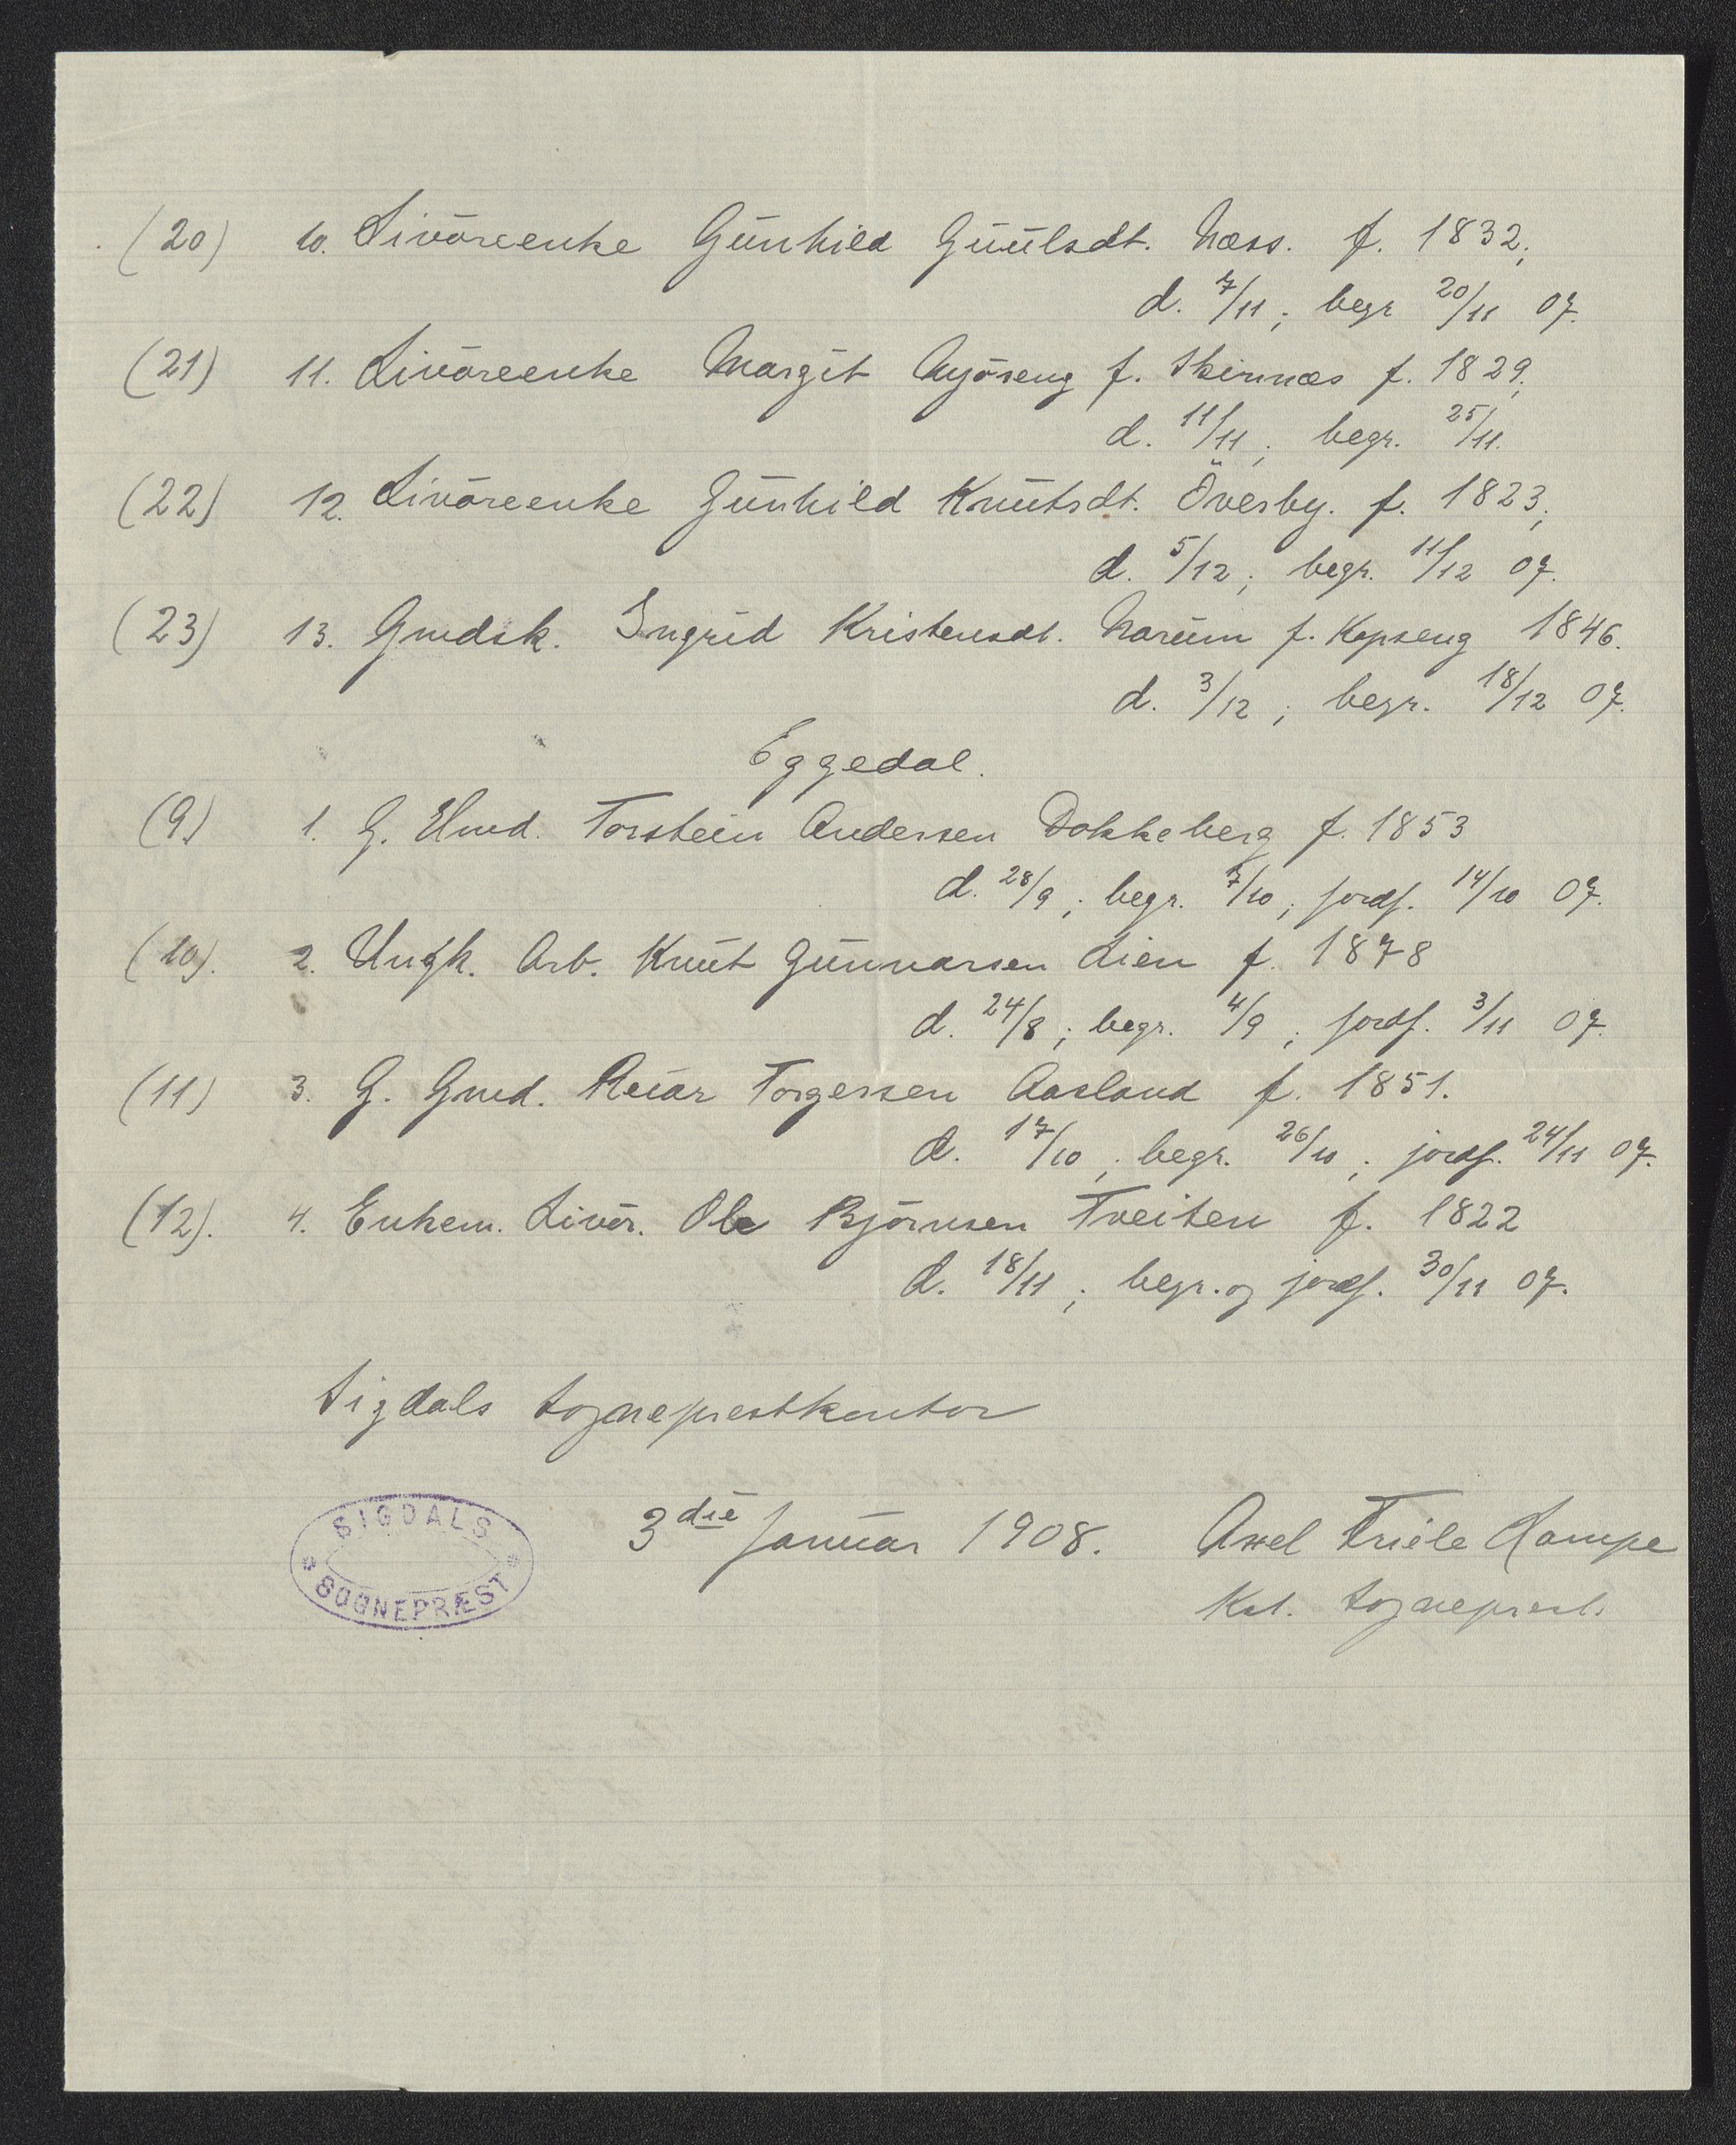 (20) 10. Livöreenke Gunhild Guulsdt. Næss. f. 1832;
d. 7/11; begr 20/11 07.
(21) 11. Livöreenke Margit Nyöseng f. Skinnæs f. 1829;
d. 11/11; begr. 25/11.
(22) 12. Livöreenke Gunhild Knutsdt. Överby. f. 1823;
d. 5/12; begr. 11/12 07.
(23) 13. Gmdsk. Ingrid Kristensdt. Narum f. Kopseng 1846.
d. 3/12; begr. 18/12 07.
Eggedal.
(9) 1. G. Hmd. Torstein Andersen Dokkeberg f. 1853
d. 28/9; begr. 7/10; jordf. 14/10 07.
(10). 2. Ungk. Arb. Knut Gunnarsen Lien f. 1878
d. 24/8; begr. 4/9; jordf. 3/11 07.
(11) 3. G. Gmd. Reiar Torgersen Aasland f. 1851.
d. 17/10; begr. 26/10; jordf. 24/11 07.
(12). 4. Enkem. Livör. Ole Björnsen Tveiten f. 1822
d. 18/11; begr. og jordf. 30/11 07.
Sigdals sogneprestkontor
3die Januar 1908. Axel Friele Lampe
Kst. sogneprest.
SIGDALS
SOGNEPRÆST